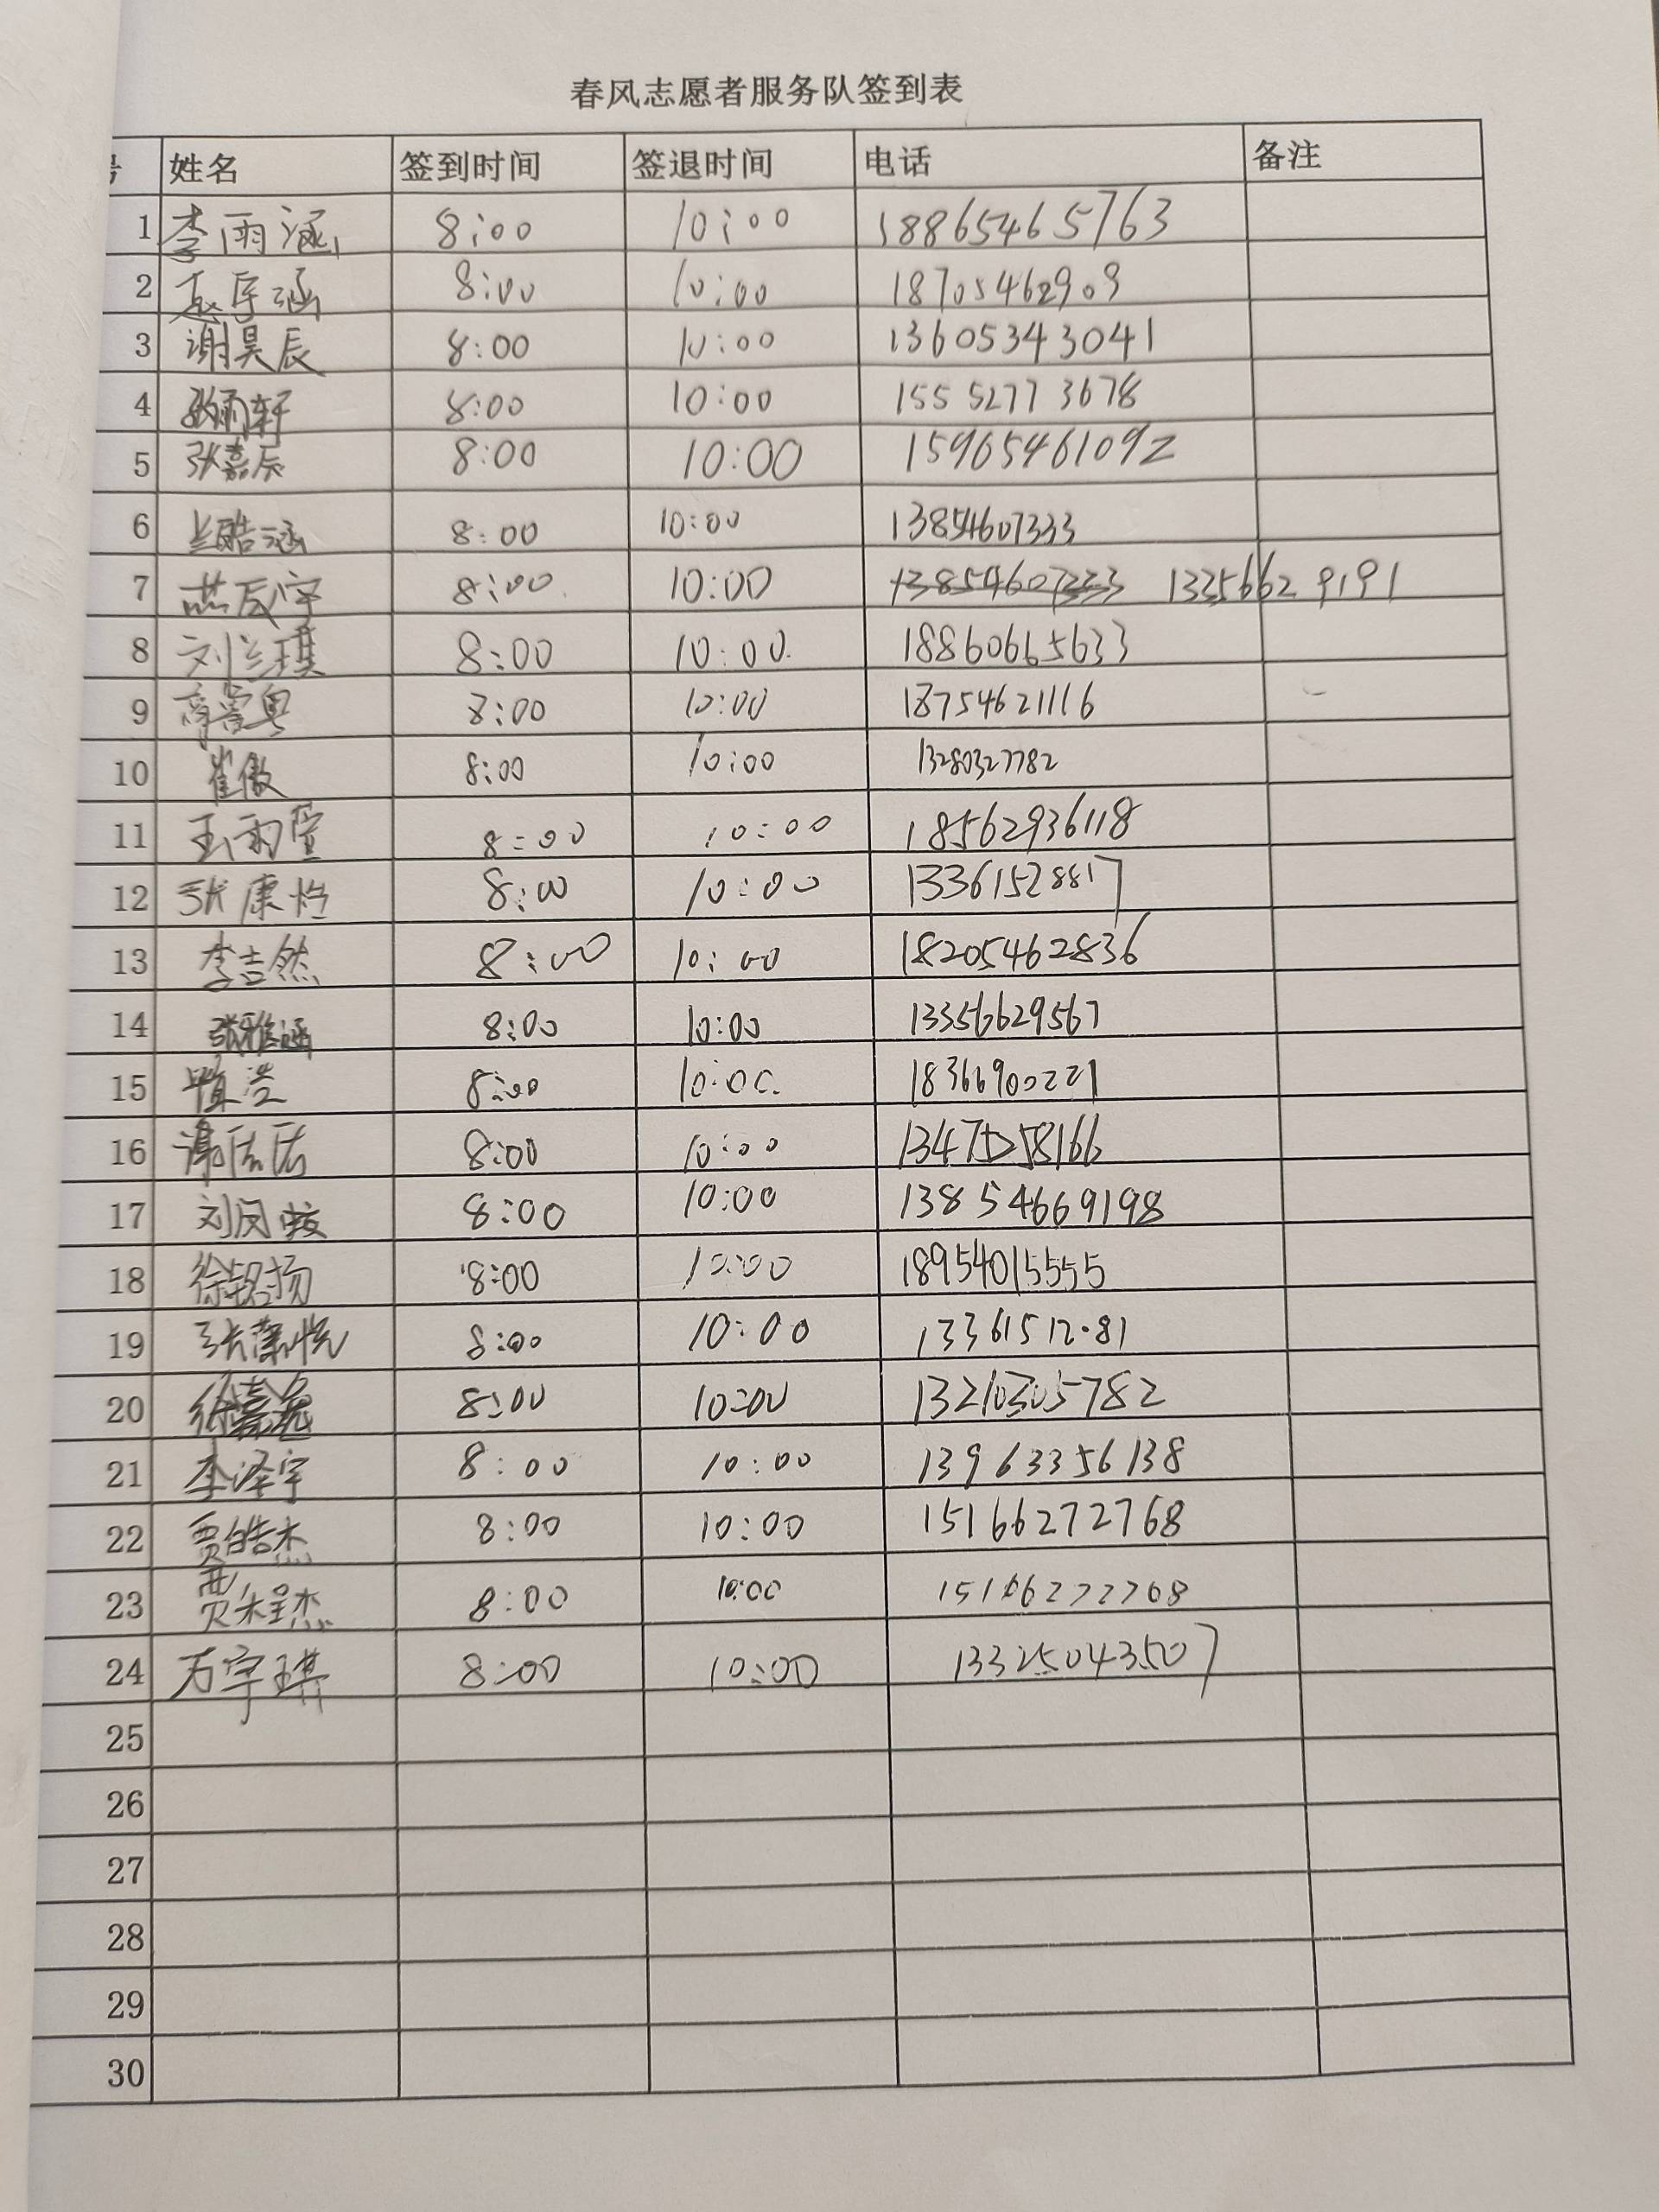 春风志愿者服务队签到表
号 姓名 签到时间 签退时间 电话 备注
1 李雨涵 8:00 10:00 18865465763
2 8:00 10:00 18705462909
3 谢昊辰 8:00 10:00 13605343041
4 8:00 10:00 15552773678
5 张嘉辰 8:00 10:00 15965461092
6 8:00 10:00 13854607333
7 燕辰宇 8:00 10:00 13854607333 13256629191
8 刘兰琪 8:00 10:00 18860665633
9 8:00 10:00 18754621116
10 崔傲 8:00 10:00 13280327782
11 王雨萱 8:00 10:00 18562936118
12 张康 8:00 10:00 13361528817
13 李吉然 8:00 10:00 18205462836
14 张雅涵 8:00 10:00 13356629567
15 8:00 10:00 18366900221
16 8:00 10:00
17 刘 8:00 10:00 13854669198
18 徐铭扬 8:00 10:00 18954015555
19 张 悦 8:00 10:00
20 徐嘉 8:00 10:00
21 李泽宇 8:00 10:00 13963356138
22 贾皓杰 8:00 10:00 15166272768
23 贾 杰 8:00 10:00 15166272768
24 万宇琪 8:00 10:00 13325043507
25
26
27
28
29
30